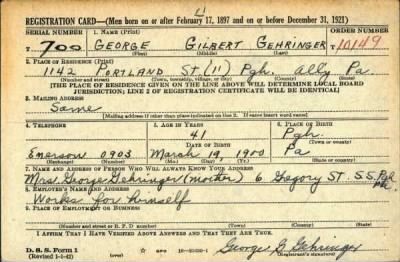 4
REGISTRATION CARD—(Men born on or after February 17, 1897 and on or before December 31, 1921)
SERIAL NUMBER 1. NAME (Print) ORDER NUMBER
700 GEORGE GILBERT GEHRINGER 10149
2. PLACE OF RESIDENCE (Print)
1142 PORTLAND ST (11) Pgh. Ally Pa.
(Number and street) (Town, township, village, or city) (County) (State)
[THE PLACE OF RESIDENCE GIVEN ON THE LINE ABOVE WILL DETERMINE LOCAL BOARD
JURISDICTION; LINE 2 OF REGISTRATION CERTIFICATE WILL BE IDENTICAL]
3. MAILING ADDRESS
Same
[Mailing address if other than place indicated on line 2. If same insert word same]
4. TELEPHONE 5. AGE IN YEARS 6. PLACE OF BIRTH
41 Pgh.
DATE OF BIRTH (Town or county)
Emerson 0903 March 19, 1900 Pa
(Exchange) (Number) (Mo.) (Day) (Yr.) (State or country)
7. NAME AND ADDRESS OF PERSON WHO WILL ALWAYS KNOW YOUR ADDRESS
Mrs. George Gehringer (mother) 6 Gregory ST. S.S. Pgh
8. EMPLOYER'S NAME AND ADDRESS
Works for himself
9. PLACE OF EMPLOYMENT OR BUSINESS
(Number and street or R. F. D. number) (Town) (County) (State)
I AFFIRM THAT I HAVE VERIFIED ABOVE ANSWERS AND THAT THEY ARE TRUE.
D. S. S. Form 1
(Revised 1-1-42) George G. Gehringer
(Registrant's signature)